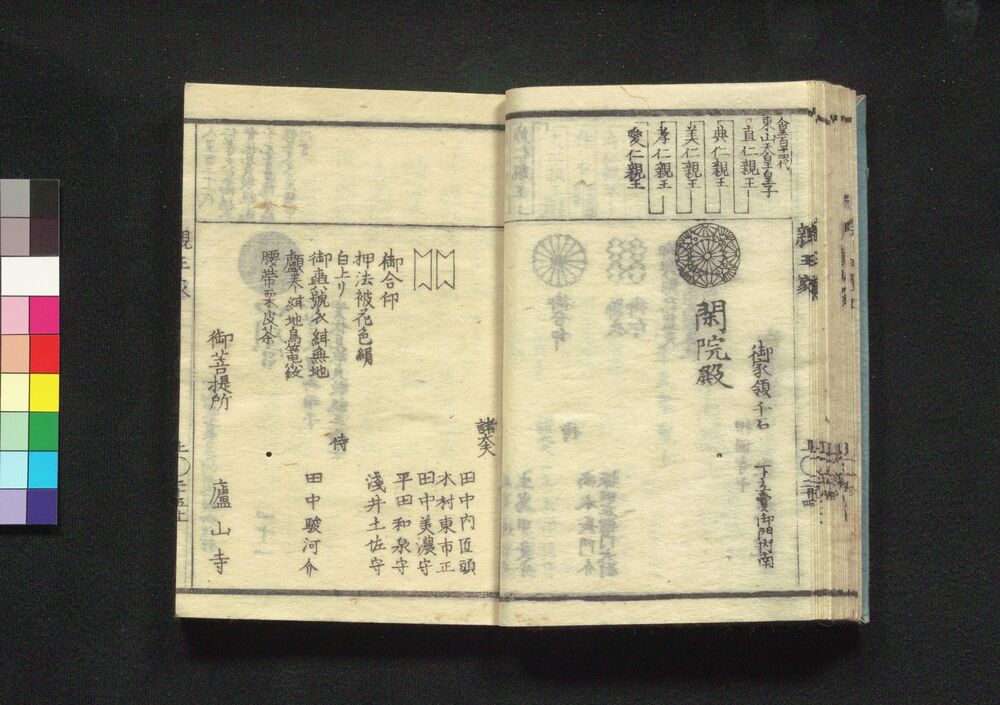 人皇百十四代
東山天皇皇子
直仁親王
典仁親王
美仁親王
孝仁親王
愛仁親王
親王家
御家領千石
下立賣御門内南
閑院殿
諸大夫
田中内匠頭
木村東市正
田中美濃守
平田和泉守
淺井土佐守
御合印
押法被花色絹
白上リ
侍
田中駿河介
腰帯栗皮茶
御菩提所
廬山寺